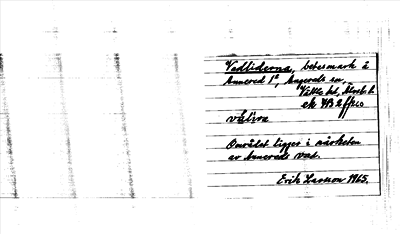 Vadliderna, betesmark å
Annered 1², Angereds sn,
Vättle hd, Älvsb. l.
ek. 7B 2f
vå:lira
Området ligger i närheten
av Annereds vad.
Erik Larsson 1965.